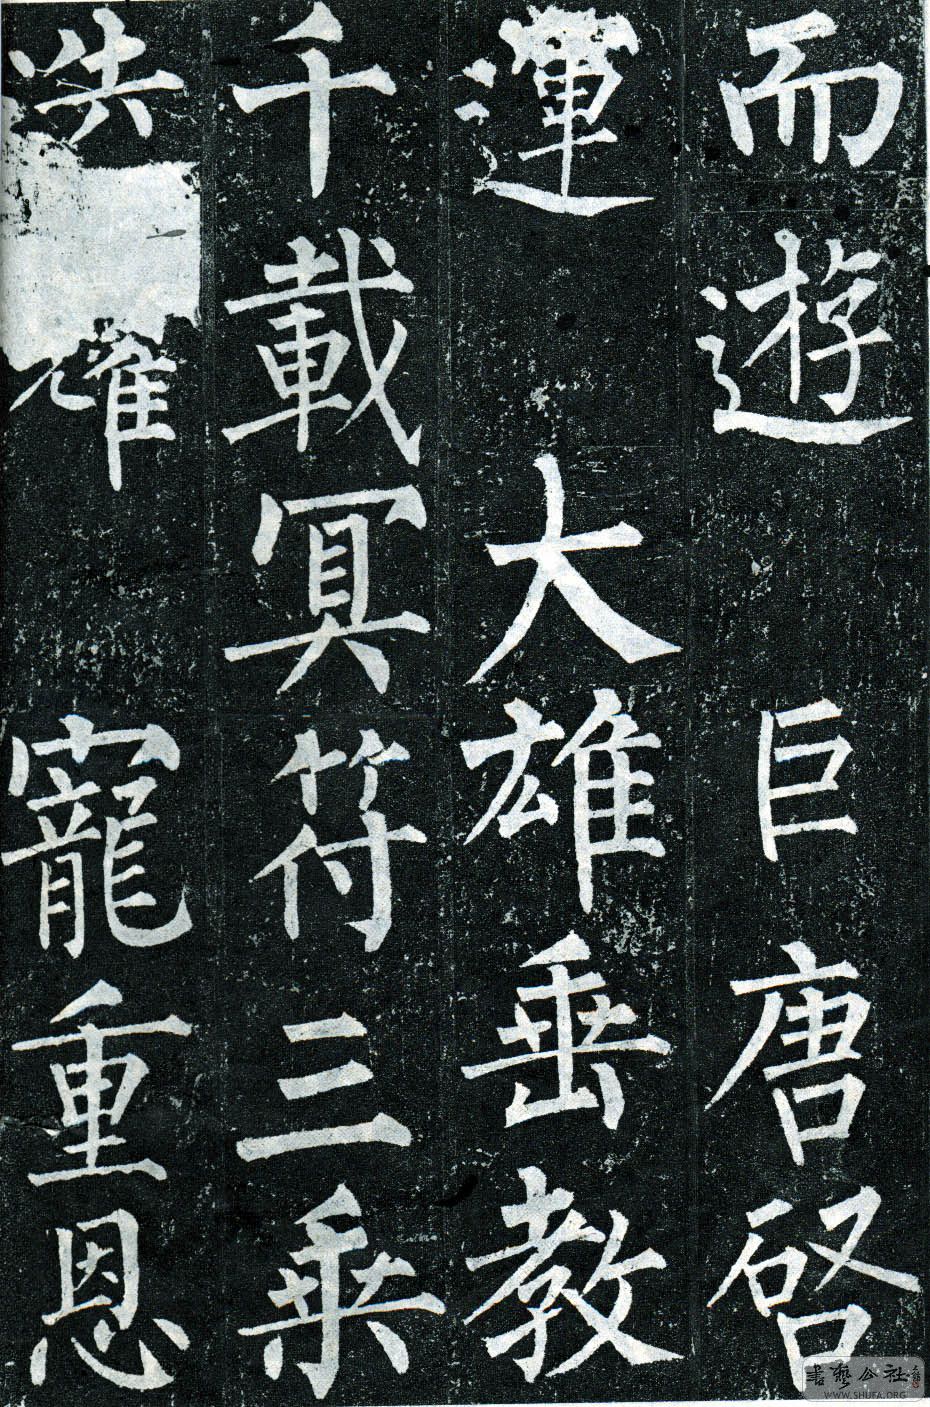 而遊巨唐啓
運大雄垂教
千載冥符三乘
耀寵重恩
書藝公社
WWW.SHUFA.ORG